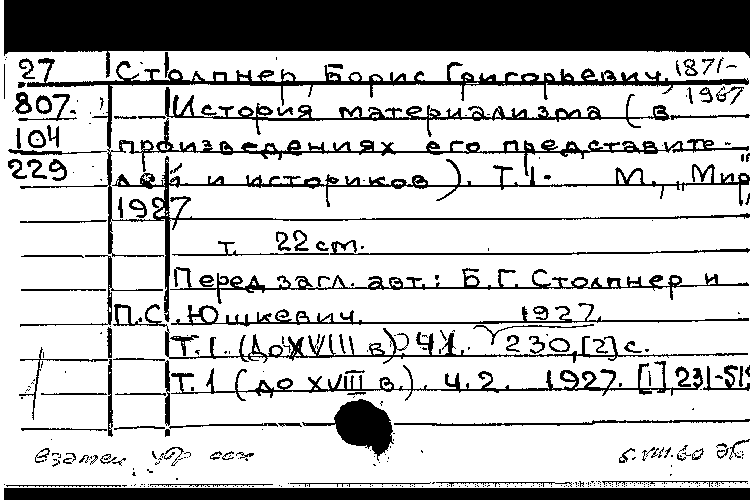 27 Столпнер, Борис Григорьевич, 1871-
807. История материализма (в 1967
104 произведениях его представите-
229 лей и историков). Т.1. М., "Мир",
1927
т. 22 см.
Перед загл. авт.: Б.Г. Столпнер и
П.С. Юшкевич. 1927.
Т.1. (до XVIII в.) Ч.1. 230,[2] с.
Т.1 (до XVIII в.). Ч.2. 1927. [1], 231-519
взамен
5.VIII.60